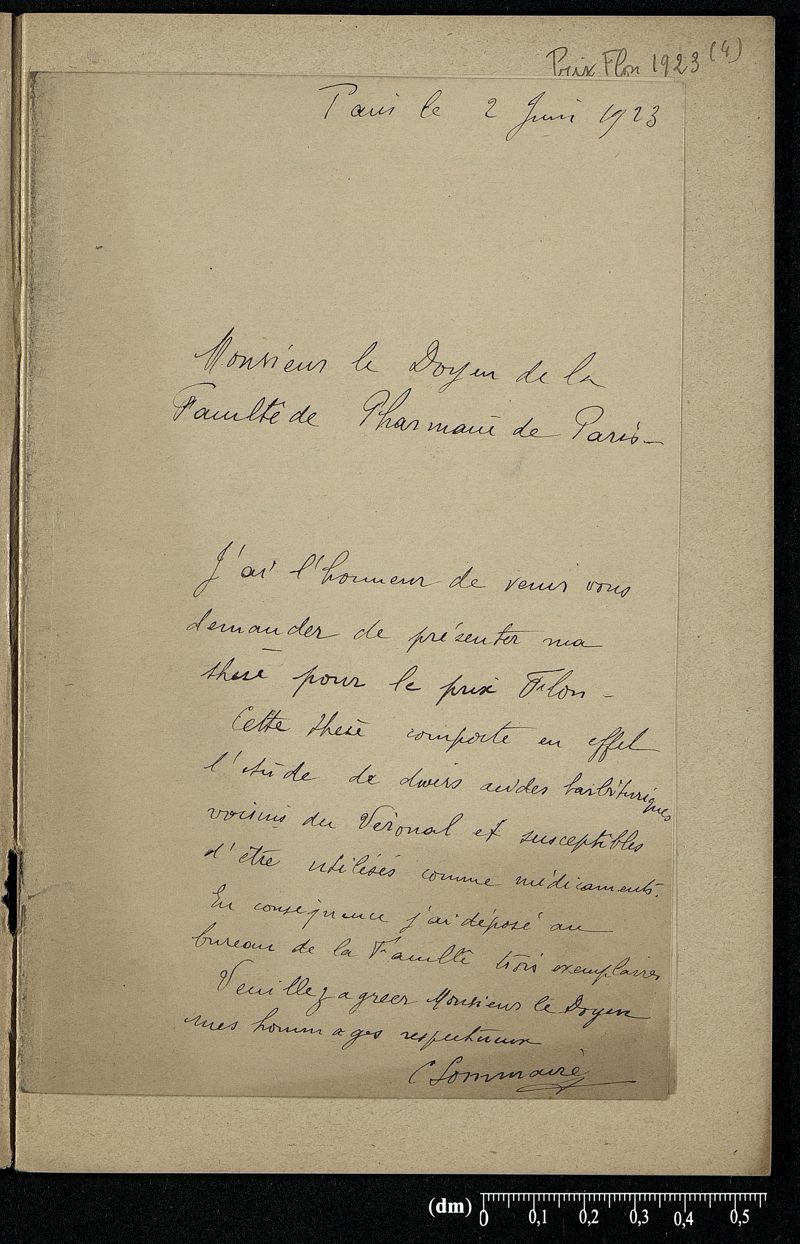 Prix Flon 1923 (4)
Paris le 2 Juin 1923
Monsieur le Doyen de la
Faculté de Pharmacie de Paris_
J'ai l'honneur de venir vous
demander de présenter ma
thèse pour le prix Flon_
Cette thèse comporte en effet
l'étude de divers acides barbituriques
voisins du Véronal et susceptibles
d'être utilisés comme médicaments.
En conséquence j'ai déposé au
bureau de la Faculté trois exemplaires
Veuillez agréer Monsieur le Doyen
mes hommages respectueux
C Sommaire
(dm) 0 0,1 0,2 0,3 0,4 0,5